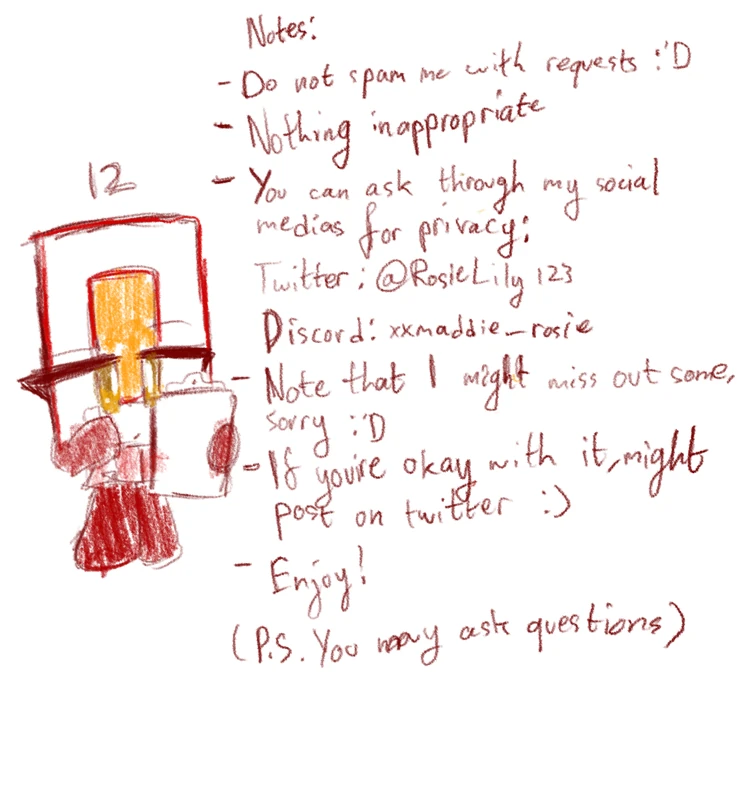 Notes:
- Do not spam me with requests :'D
- Nothing inappropriate
12
- You can ask through my social
medias for privacy:
Twitter: @RosieLily123
Discord: xxmaddie_rosie
- Note that I might miss out some,
sorry :'D
- If you're okay with it, might
post on twitter :)
- Enjoy!
(P.S. You may ask questions)